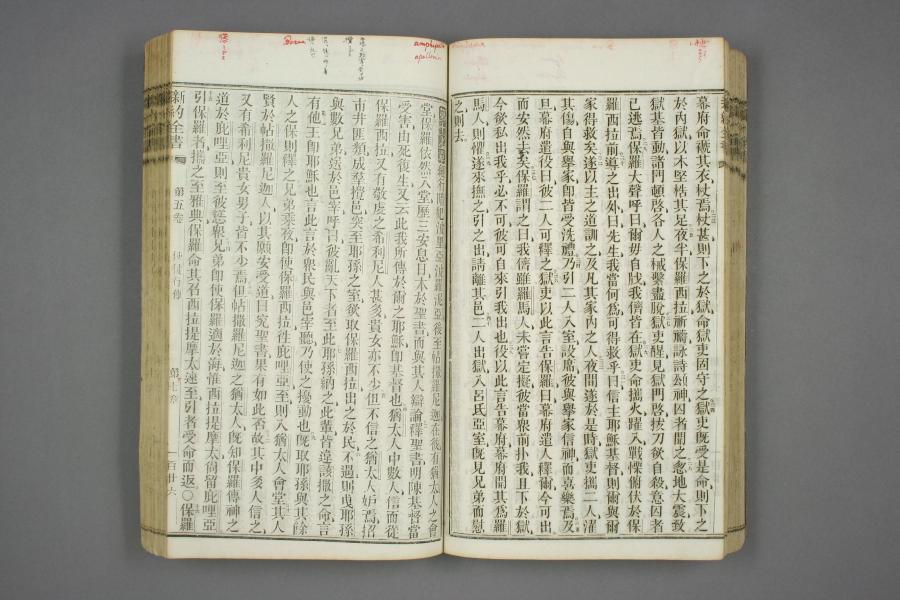 幕府命褫其衣杖焉杖甚則下之於獄命獄吏固守之獄吏既受是命則下之
於內獄以木堅梏其足夜半保羅西拉祈禱詠詩頌神囚者聞之忽地大震致
獄基皆動諸門頓啓各人之械繫盡脫獄吏醒見獄門啓拔刀欲自殺意囚者
已逃焉保羅大聲呼曰爾毋自戕我儕皆在獄吏命攜火躍入戰慄俯伏於保
羅西拉前導之出外曰先生我當何爲可得救乎曰信主耶穌基督則爾與爾
家得救矣遂以主之道訓之及凡其家內之人夜間遂於是時獄吏攜二人濯
其傷自與舉家卽皆受洗禮乃引二人入室設席彼與舉家信神而喜樂焉及
旦幕府遣役曰彼二人可釋之獄吏以此言告保羅曰幕府遣人釋爾今可出
而安然去矣保羅謂之曰我儕雖羅馬人未嘗定擬彼當衆前扑我且下於獄
今欲私出我乎必不可彼可自來引我出也役以此言告幕府幕府聞其爲羅
馬人則懼遂來撫之引之出請離其邑二人出獄入呂氏亞室旣見兄弟而慰
之則去
amphipo
apollonia
堂保羅依然入堂歷三安息日本於聖書而與其人辯論釋聖書明陳基督當
受害由死復生又云此我所傳於爾之耶穌卽基督也猶太人中數人信而從
保羅西拉又有敬虔之希利尼人甚多貴女亦不少但不信之猶太人妒焉招
市井匪類成羣擾邑突至耶孫之室欲取保羅西拉出之於民不遇則曳耶孫
與數兄弟送於邑宰呼曰彼亂天下者至此耶孫納之此輩皆違該撒之命言
有他王卽耶穌也言此言於衆民與邑宰聽乃使之擾動也旣取耶孫與其餘
人之保則釋之兄弟乘夜卽使保羅西拉往庇哩亞至則入猶太人會堂其人
賢於帖撒羅尼迦人以其願安受道日究聖書果有如此否故其中多人信之
又有希利尼貴女男子皆不少焉但帖撒羅尼迦之猶太人旣知保羅傳神之
道於庇哩亞則至彼惑衆兄弟卽使保羅適於海惟西拉提摩太尙留庇哩亞
引保羅者攜之至雅典保羅命其召西拉提摩太速至引者受命而返○保羅
新約全書
第五卷
使徒行傳
百廿六